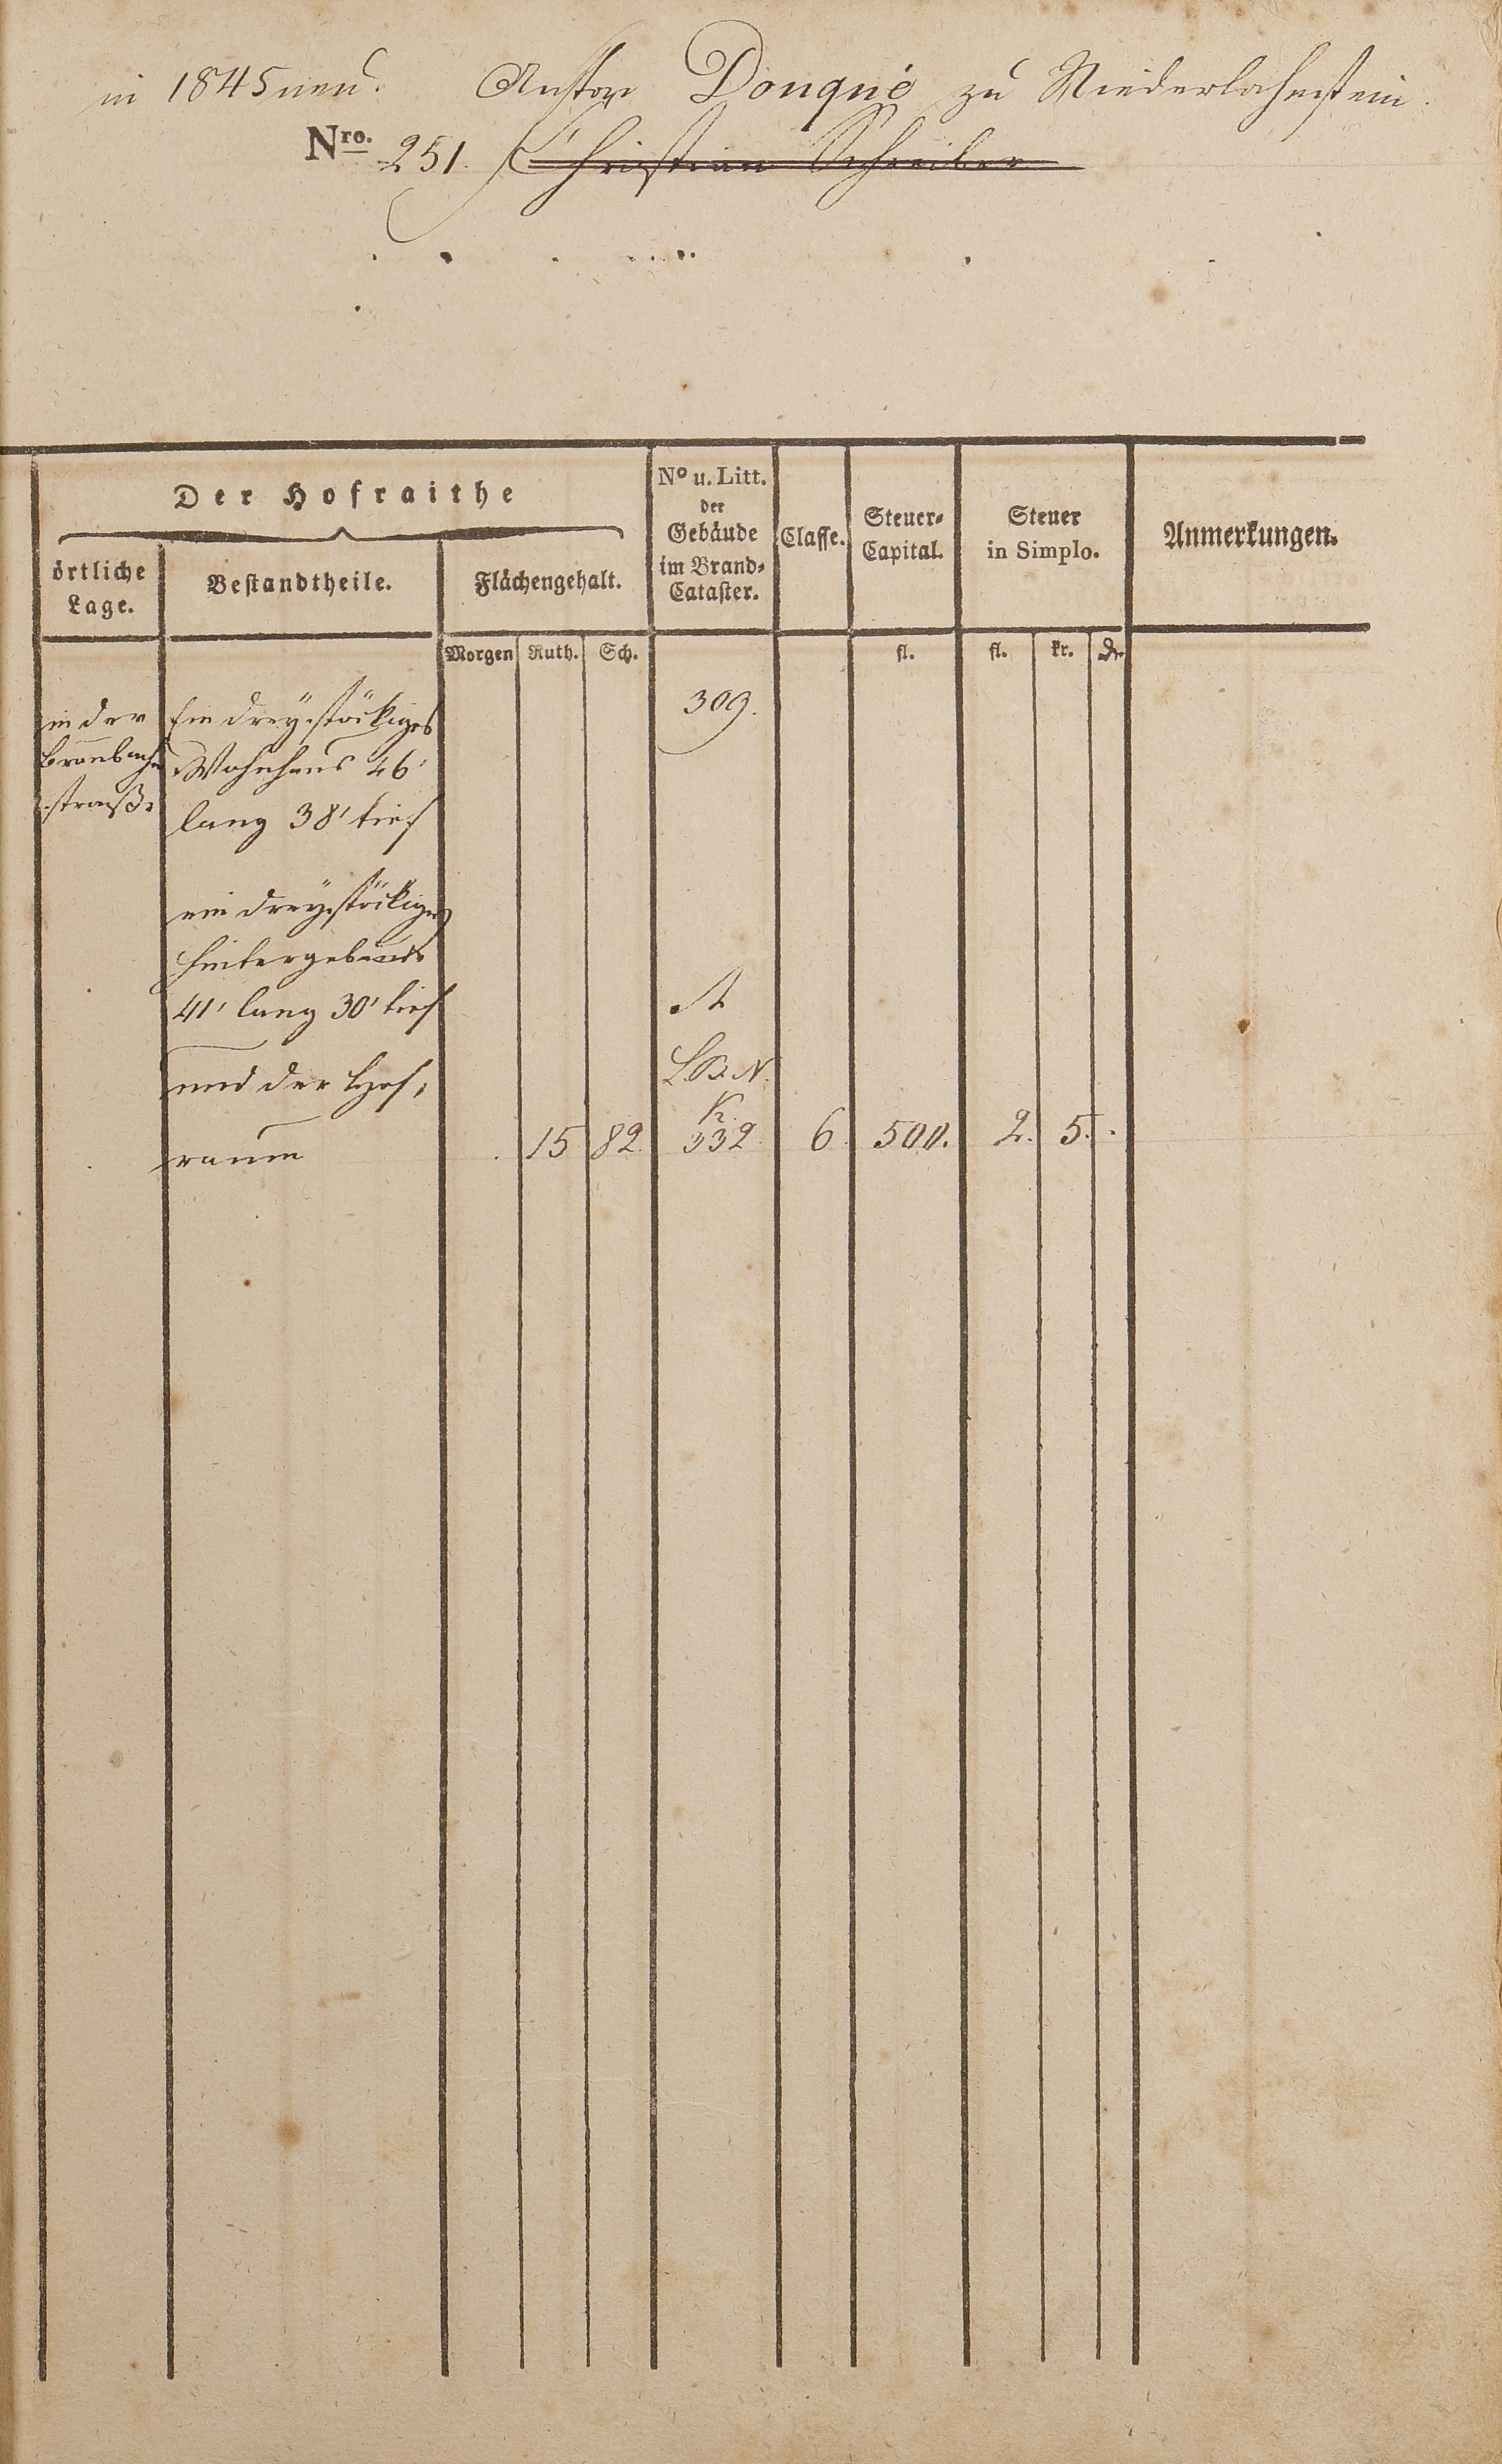 in 1845 neu. Anton Douqué zu Niederlahnstein.
Nro. 251. Christian Schreiber
Der Hofraithe
örtliche Lage.
Bestandtheile.
Flächengehalt.
No u. Litt. der Gebäude im Brand-Cataster.
Classe.
Steuer-Capital.
Steuer in Simplo.
Anmerkungen.
Morgen Ruth. Sch. fl. fl. kr. dr
in der Ein dreystöckiges 309.
Wohnhaus 46'
straße lang 38' tief
ein dreystöckiges
Hintergebäude
41' lang 30' tief A
und der Hof- L.B.N.
raum 15 82 332 6. 500. 2. 5. .